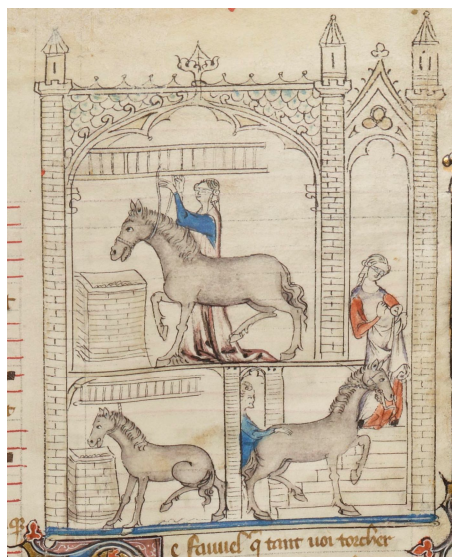 e fauuel q tant uoi torcher